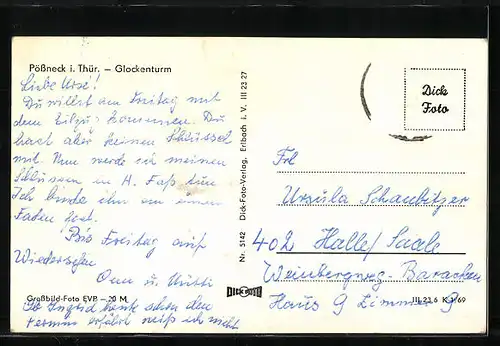 Pößneck i. Thür. – Glockenturm
Liebe Urse!
Du willst am Freitag mit
dem Eilzug kommen. Du
hast aber keinen Schlüssel
mit. Nun werde ich meinen
Schlüssel in A. Faß tun
Ich binde ihn an einen
Faden fest.
Bis Freitag auf
Wiedersehn
Oma u. Mutti
Großbild-Foto EVP – 20 M
Ob Ingrid heute schon den
Termin erfährt weiß ich nicht
Nr. 5142 Dick-Foto-Verlag, Erlbach i. V. III 23 27
DICK FOTO
Dick
Foto
Frl
Ursula Schaubitzer
402 Halle/Saale
Weinbergweg-Baracken
Haus 9 Zimmer 9
III 23 6 K 1/69